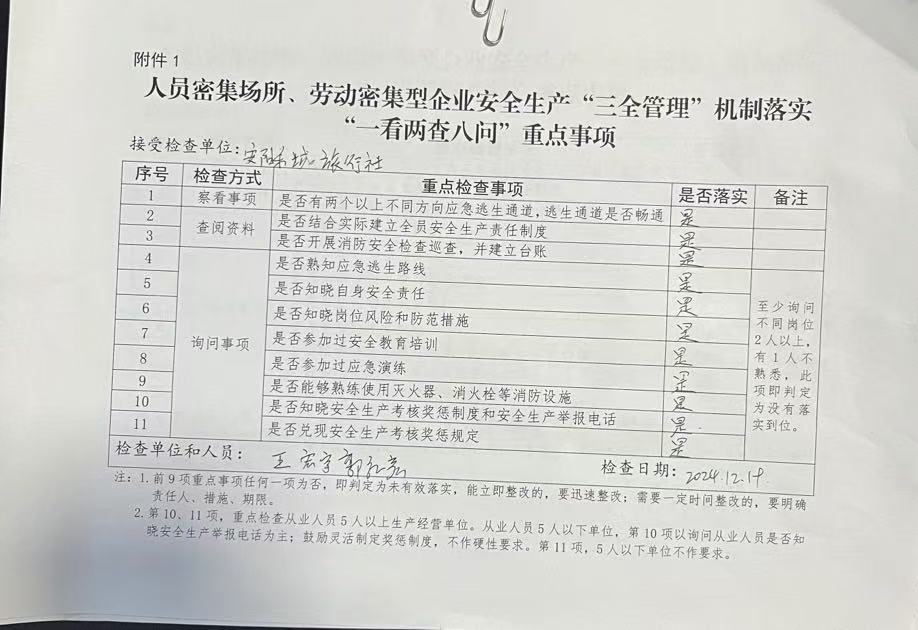 附件1
人员密集场所、劳动密集型企业安全生产“三全管理”机制落实
“一看两查八问”重点事项
接受检查单位: 旅行社
序号 检查方式 重点检查事项 是否落实 备注
1 察看事项 是否有两个以上不同方向应急逃生通道,逃生通道是否畅通 是
2 查阅资料 是否结合实际建立全员安全生产责任制度 是
3 是否开展消防安全检查巡查，并建立台账 是
4 询问事项 是否熟知应急逃生路线 是 至少询问不同岗位2人以上，有1人不熟悉，此项即判定为没有落实到位。
5 是否知晓自身安全责任 是
6 是否知晓岗位风险和防范措施 是
7 是否参加过安全教育培训 是
8 是否参加过应急演练 是
9 是否能够熟练使用灭火器、消火栓等消防设施 是
10 是否知晓安全生产考核奖惩制度和安全生产举报电话 是
11 是否兑现安全生产考核奖惩规定 是
检查单位和人员: 王宏宇 郭 检查日期: 2024.12.17
注：1.前9项重点事项任何一项为否，即判定为未有效落实，能立即整改的，要迅速整改；需要一定时间整改的，要明确
责任人、措施、期限。
2.第10、11项，重点检查从业人员5人以上生产经营单位。从业人员5人以下单位，第10项以询问从业人员是否知
晓安全生产举报电话为主；鼓励灵活制定奖惩制度，不作硬性要求。第11项，5人以下单位不作要求。